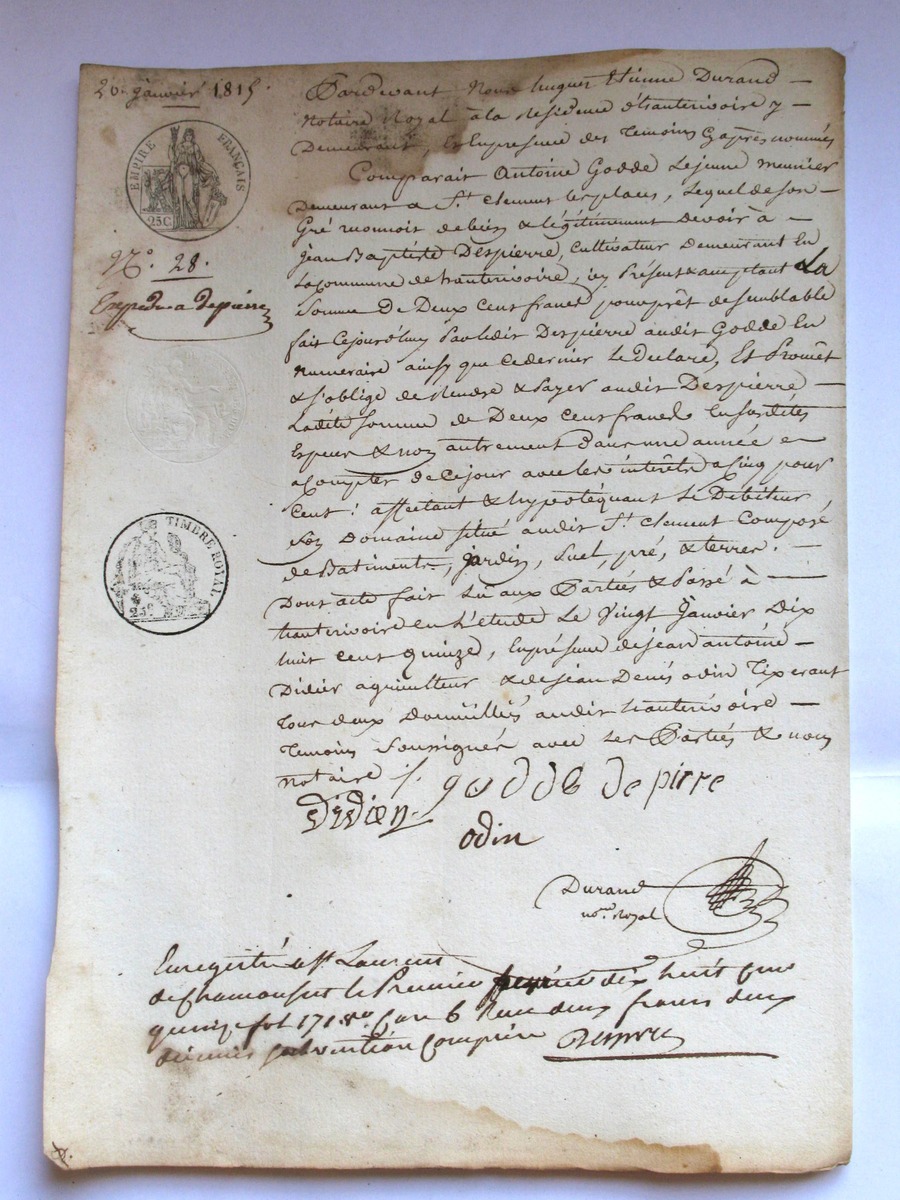 20 janvier 1815
EMPIRE FRANÇAIS
25C
N.° 28.
Expedié a depierre
LE TIMBRE ROYAL
25c
Pardevant Nous hugues Etienne Durand
Notaire Royal à la Residence d'hauterivoire y
Demeurant, et En presence des Temoins Cy après nommés
Comparait Antoine Godde Lejeune meunier
Demeurant a St. Clement les places, Lequel de son
Gré reconnoit de bien & légitimement devoir à
Jean Baptiste Despierre, Cultivateur demeurant En
La Commune de hauterivoire, icy Présent & acceptant La
Somme De Deux Cent francs pour prêt de semblable
fait Cejourd'huy Par ledit Despierre audit Godde En
Numeraire ainsy que ce dernier le Declare, Et Promêt
& s'oblige de Rendre & Payer audit Despierre
Ladite Somme de Deux Cent francs En susdites
Especes & non autrement Dans une année a
Compter de Ce jour avec les intérêts a Cinq pour
Cent: affectant & hypotéquant Le Débiteur
Son Domaine situé audit St. Clement Composé
de Batiments, jardin, Suel, pré, & terres.
Dont acte fait Lu aux Parties & Passé à
hauterivoire en L'étude Le Vingt Janvier Dix
huit Cent Quinze, En présence de jean antoine
Didier agriculteur & de Jean Denis odin Tixerant
Tous deux Domicilliés audit hauterivoire
Temoins Soussignés avec Les Parties & nous
notaire
godde depirre
Didier
odin
Durand
nore. Royal
Enregistré a St. Laurent
de Chamousset le Premier fevrier dix huit cent
quinze fol 171 Ro. Case 6 Recu deux francs deux
decimes subvention Comprise